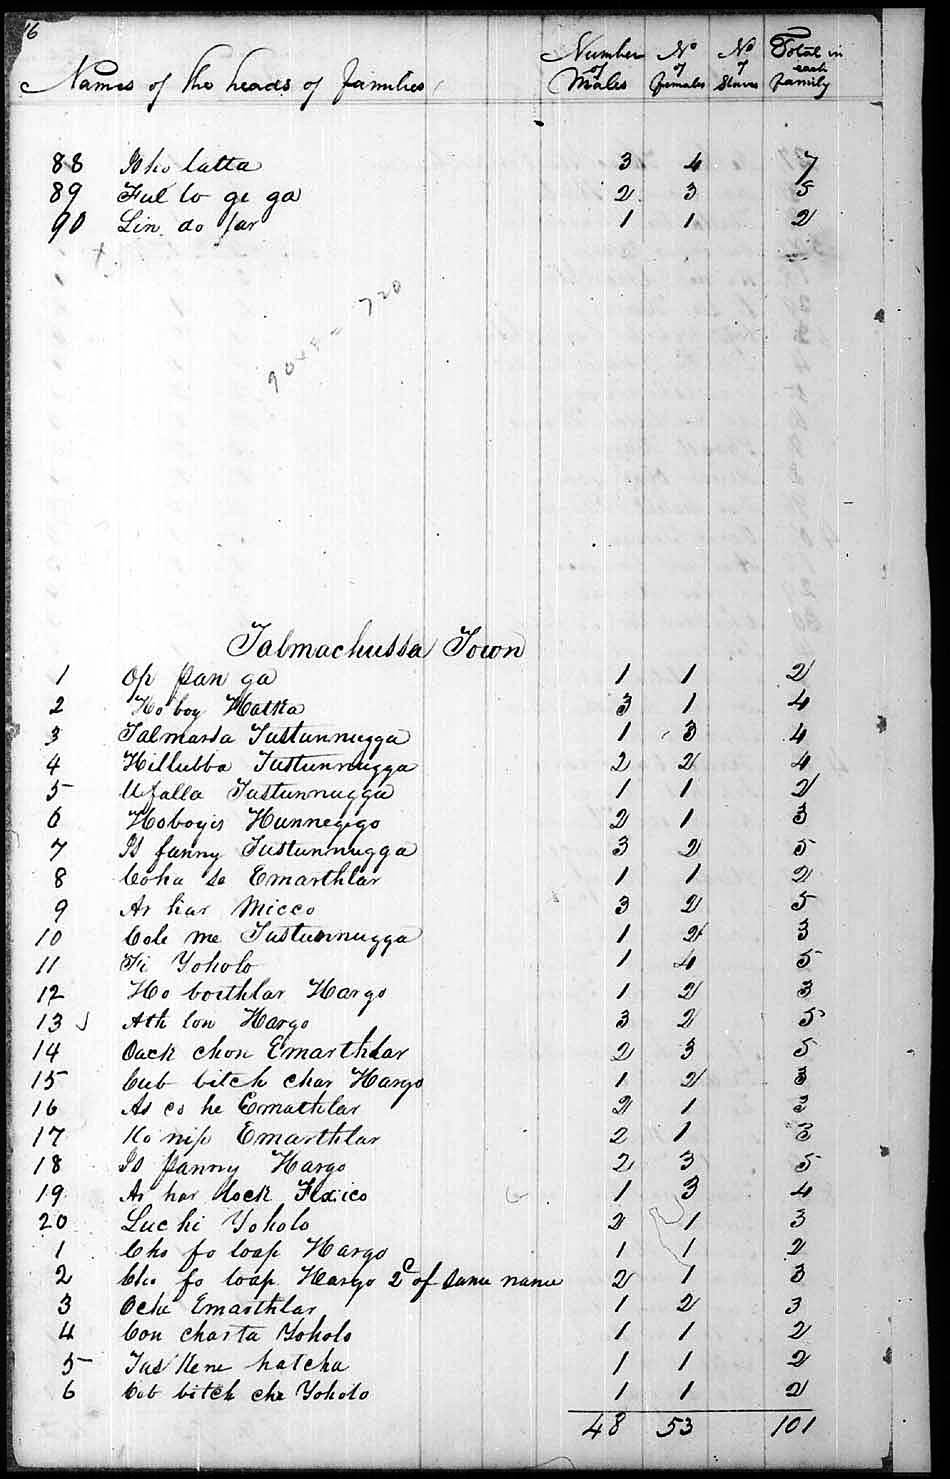 16
Names of the heads of families
Number of Males
No of females
No of Slaves
Total in each family
88 Isho latta 3 4 7
89 Ful lo gi ga 2 3 5
90 Lin do far 1 1 2
90 x 8 = 720
Talmachussa Town
1 Op pan ga 1 1 2
2 Ho boy Hatka 3 1 4
3 Talmassa Tustunnugga 1 3 4
4 Hillubba Tustunnugga 2 2 4
5 Ufalla Tustunnugga 1 1 2
6 Hoboyis Hunnegigo 2 1 3
7 Is fanny Tustunnugga 3 2 5
8 Coha se Emarthlar 1 1 2
9 Ar har Micco 3 2 5
10 Cole me Tustunnugga 1 2 3
11 Fi Yoholo 1 4 5
12 Ho boithlar Hargo 1 2 3
13 Ath lon Hargo 3 2 5
14 Oack chon Emarthlar 2 3 5
15 Cub bitch char Hargo 1 2 3
16 As co he Emathlar 2 1 3
17 Ko nip Emarthlar 2 1 3
18 Is panny Hargo 2 3 5
19 Ar har lock Fixico 1 3 4
20 Luc hi Yoholo 2 1 3
1 Cho fo loap Hargo 1 1 2
2 Cho fo loap Hargo 2d of same name 2 1 3
3 Oche Emarthlar 1 2 3
4 Con charta Yoholo 1 1 2
5 Tus Kene hatcha 1 1 2
6 Cob bitch che Yoholo 1 1 2
48 53 101